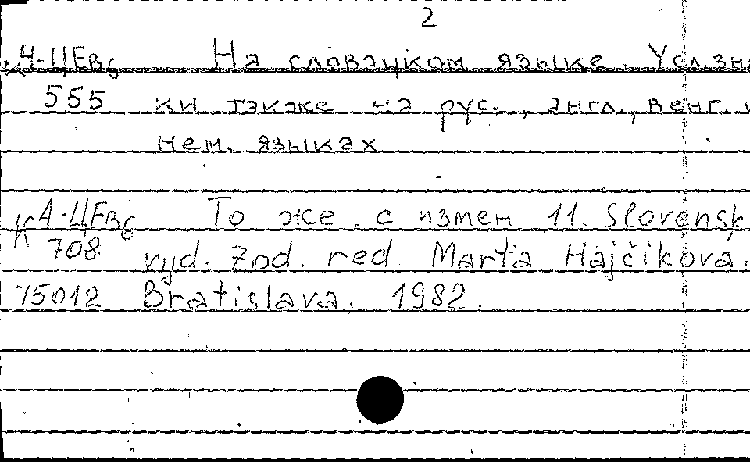 2
А-ЦЕв6 На словацком языке. Усл. зна
555 ки также на рус., англ., венг. и
нем. языках
К А-ЦЕв6 То же. с измен 11. Slovensk
708 vyd. Zod. red. Marta Hajčikova.
75012 Bratislava. 1982.